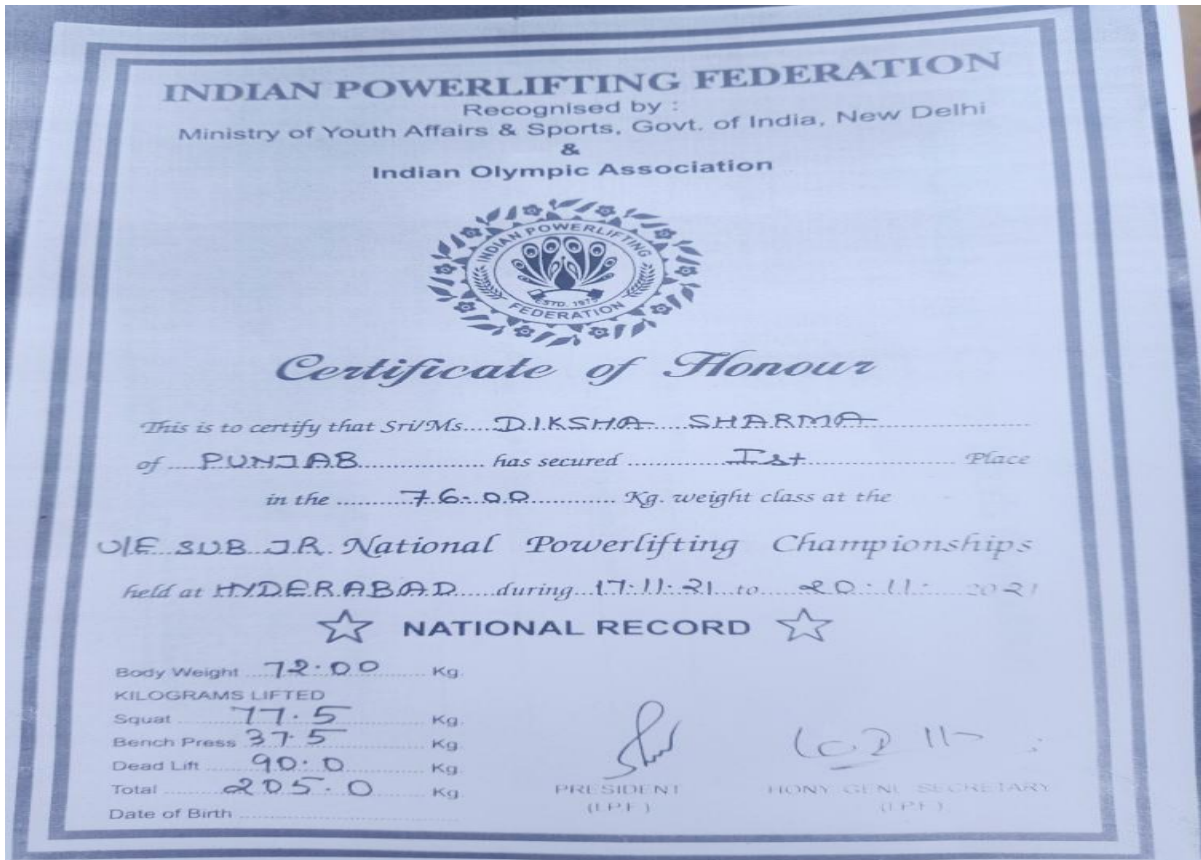 INDIAN POWERLIFTING FEDERATION
Recognised by :
Ministry of Youth Affairs & Sports, Govt. of India, New Delhi
&
Indian Olympic Association
INDIAN POWERLIFTING
ESTD. 197
FEDERATION
Certificate of Honour
This is to certify that Sri/Ms. DIKSHA SHARMA
of PUNJAB has secured Ist Place
in the 76.00 Kg. weight class at the
U/E SUB JR. National Powerlifting Championships
held at HYDERABAD during 17.11.21 to 20.11. 2021
NATIONAL RECORD
Body Weight 72.00 Kg.
KILOGRAMS LIFTED
Squat 77.5 Kg.
Bench Press 37.5 Kg.
Dead Lift 90.0 Kg.
Total 205.0 Kg.
Date of Birth
PRESIDENT
(I.P.F.)
HONY GENL SECRETARY
(I.P.F.)